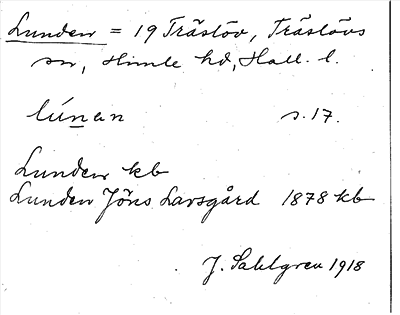 Lunden = 19 Träslöv, Träslövs
sn, Himle hd, Hall. l.
lúnan s. 17.
Lunden kb
Lunden Jöns Larsgård 1878 kb
J. Sahlgren 1918